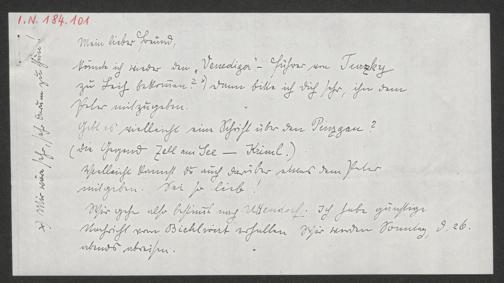 I.N. 184.101
Mein lieber Freund,
könnte ich wieder den „Venediga"- Führer von Turzky
zu Leih bekommen? *) Dann bitte ich dich sehr, ihn dem
Peter mitzugeben.
Gibt es vielleicht eine Schrift über den Pinzgau?
(die Gegend Zell am See — Kriml.)
Vielleicht kannst du auch darüber etwas dem Peter
mitgeben. Sei so lieb!
Wir gehen also bestimmt nach Uttendorf. Ich habe günstige
Nachricht von dort erhalten. Wir werden Sonntag, d. 26.
abends abreisen.
*) Wir